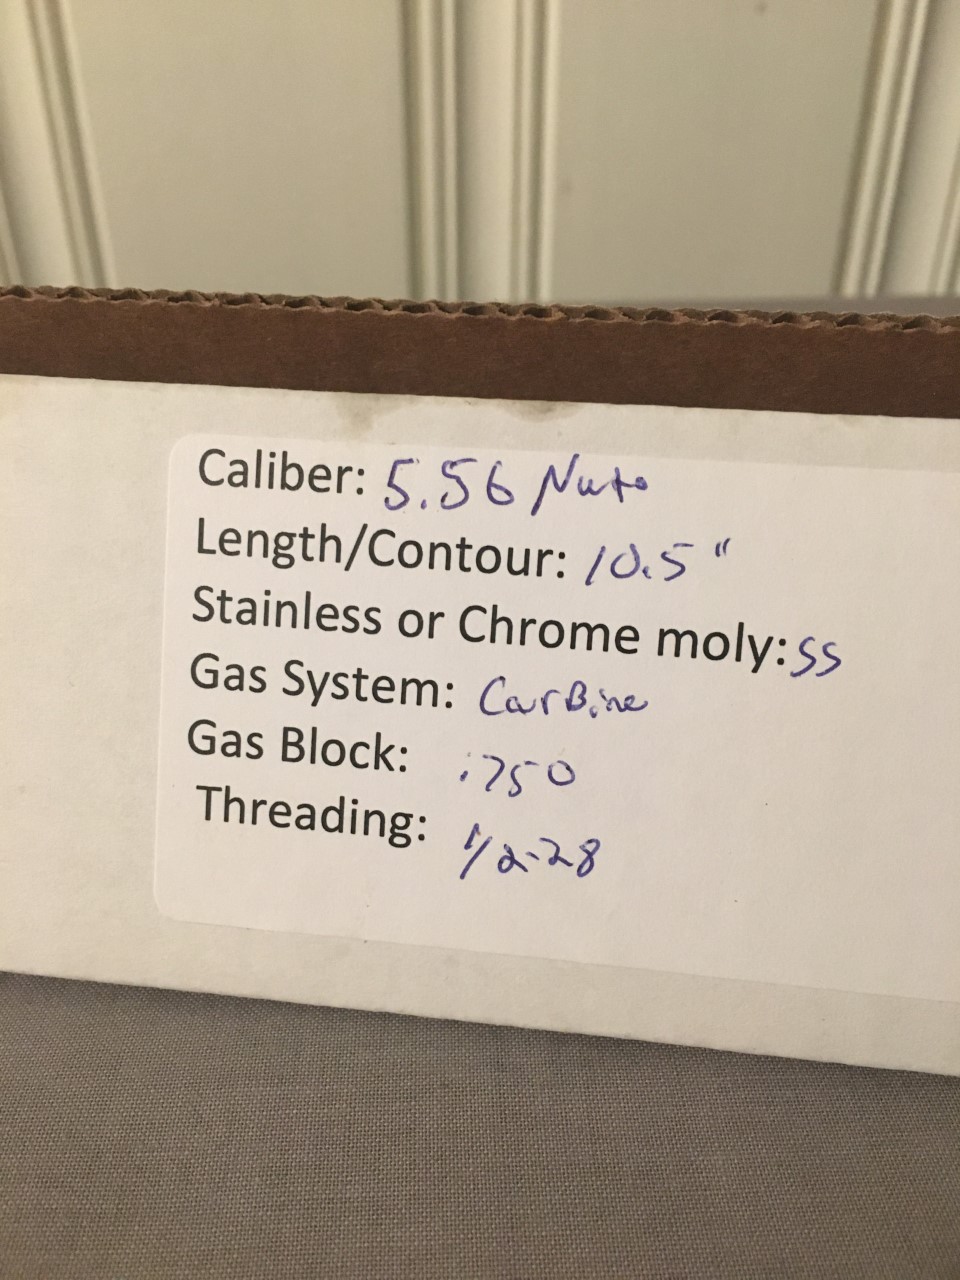 Caliber: 5.56 Nato
Length/Contour: 10.5"
Stainless or Chrome moly: SS
Gas System: CarBine
Gas Block: .750
Threading: 1/2-28